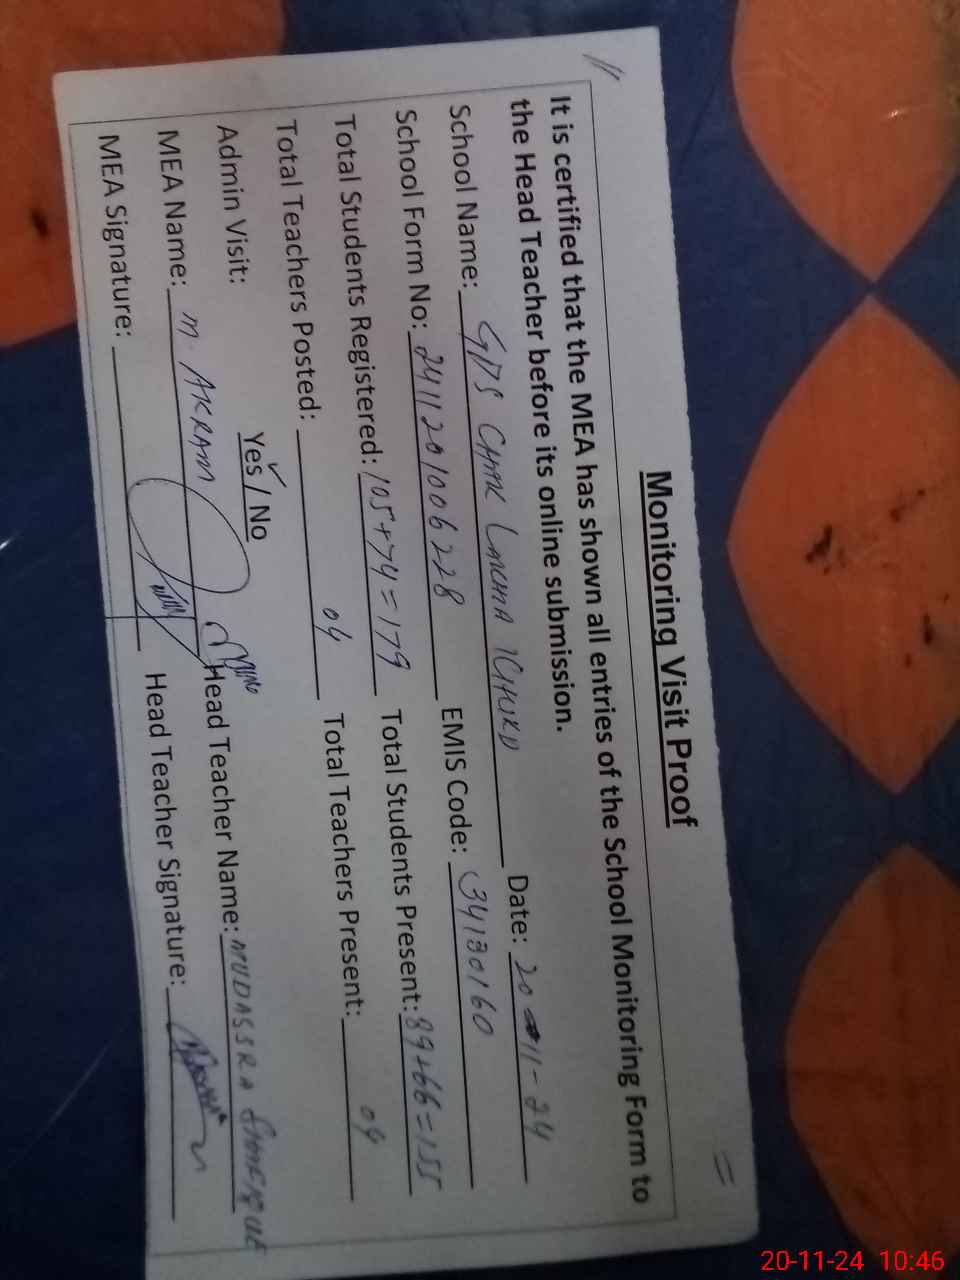 Monitoring Visit Proof
It is certified that the MEA has shown all entries of the School Monitoring Form to
the Head Teacher before its online submission.
School Name: GPS CHAK Date: 20-11-24
School Form No: 2411201006228 EMIS Code: 34130160
Total Students Registered: 105+74=179 Total Students Present: 89+66=155
Total Teachers Posted: 04 Total Teachers Present: 04
Admin Visit: Yes / No
MEA Name: M. AKRAM Head Teacher Name: MUDASSRA
MEA Signature: Head Teacher Signature:
20-11-24 10:46